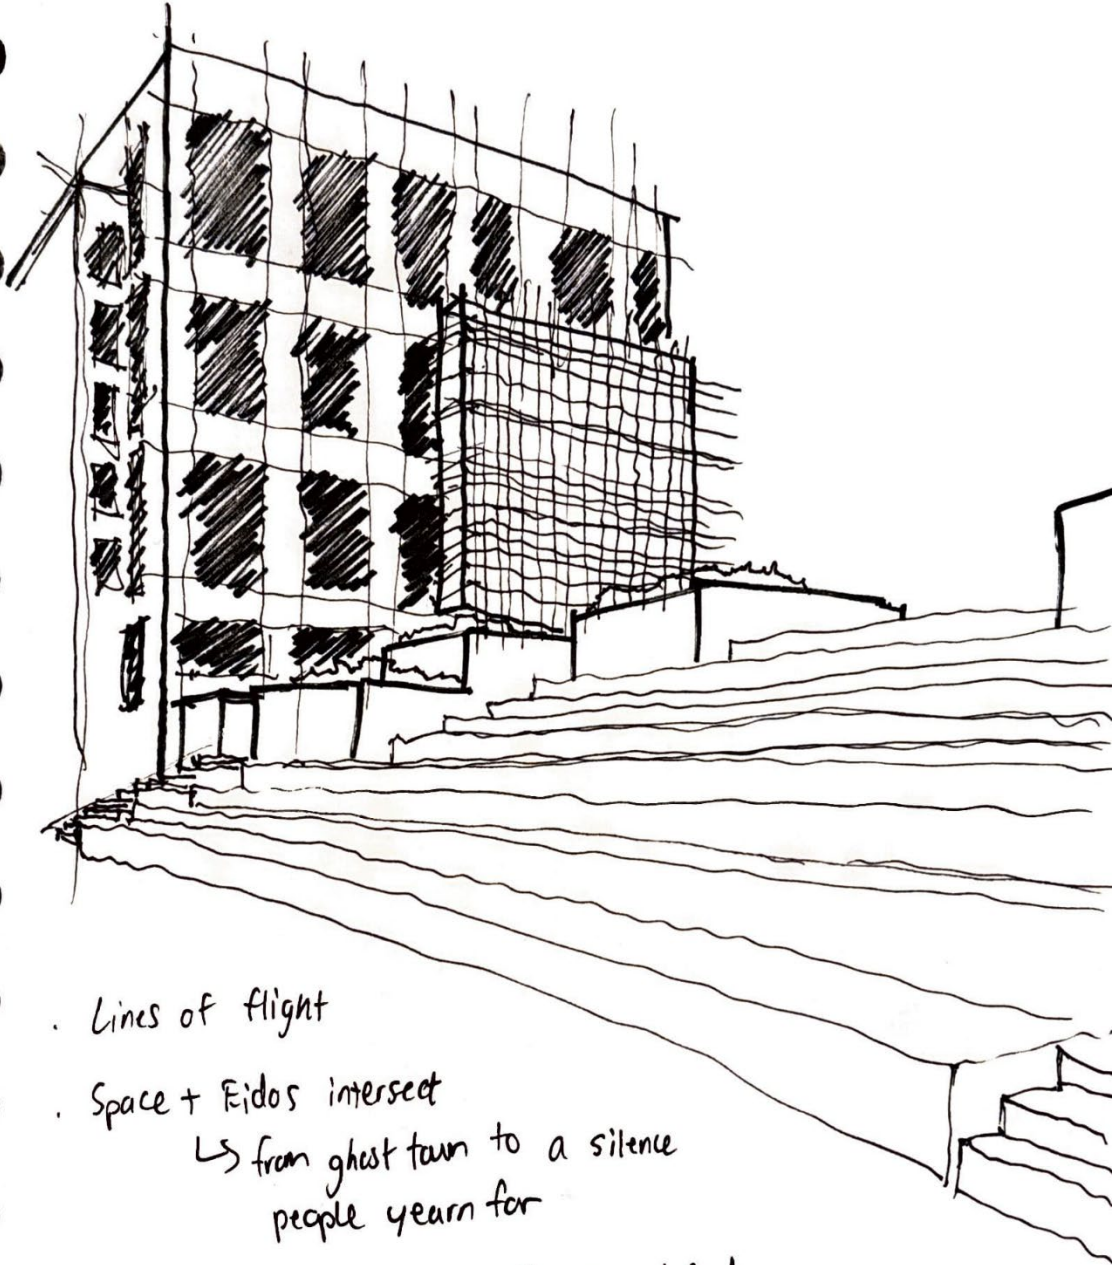 . Lines of flight
. Space + Eidos intersect
↳ from ghost town to a silence
people yearn for